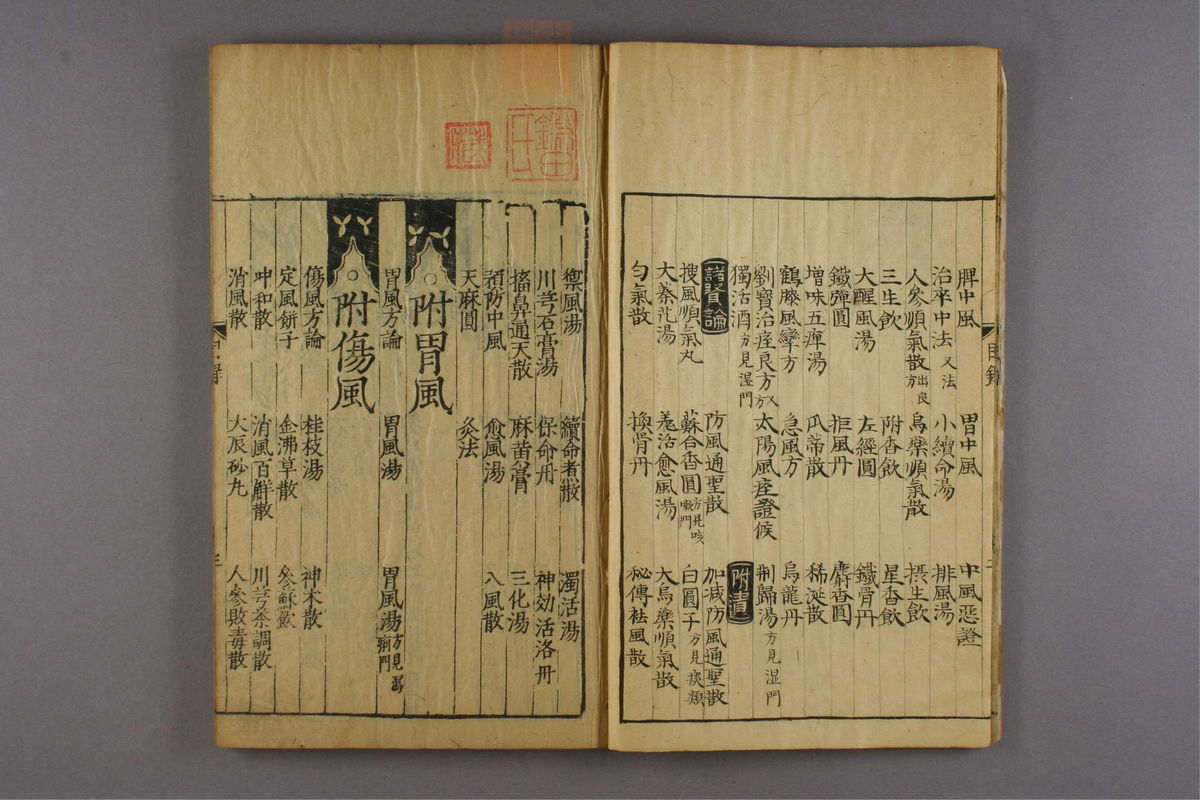 脾中風　胃中風　中風惡證
治卒中法又法　小續命湯　排風湯
人參順氣散出良方　烏藥順氣散　摂生飲
三生飲　附香飲　星香飲
大醒風湯　左經圓　鐵骨丹
鐵彈圓　拒風丹　麝香圓
增味五痺湯　瓜蒂散　稀涎散
鶴膝風攣方　急風方　烏龍丹
劉寶治痓良方　太陽風痓證候　荆歸湯方見湿門
獨活酒方見湿門　附
諸賢論　防風通聖散　加减防風通聖散
搜風順氣丸　蘇合香圓方見咳嗽門　白圓子方見痰類
大秦艽湯　羗活愈風湯　大烏藥順氣散
勻氣散　換骨丹　秘傳祛風散
目錄
禦風湯　續命煮散　獨活湯
川芎石膏湯　保命丹　神効活洛丹
搐鼻通天散　麻黄膏　三化湯
預防中風　愈風湯　八風散
天麻圓　灸法
附胃風
胃風方論　胃風湯　胃風湯方見瀉痢門
附傷風
傷風方論　桂枝湯　神术散
定風餅子　金沸草散　參蘇飲
冲和散　消風百解散　川芎茶調散
消風散　大辰砂丸　人參敗毒散